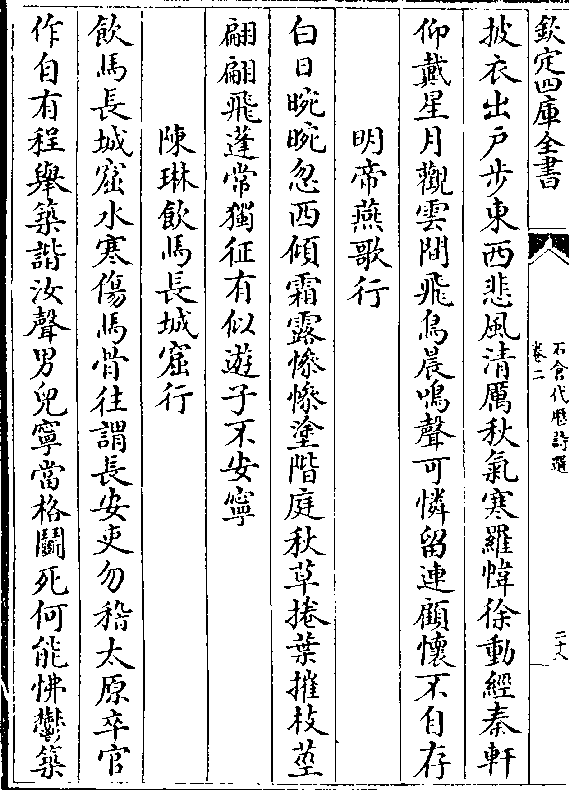 欽定四庫全書
石倉代歴詩選
卷二
二十八
披衣出戸步東西悲風清厲秋氣寒羅幃徐動經秦軒
仰戴星月觀雲間飛鳥晨鳴聲可憐留連顧懷不自存
明帝燕歌行
白日晼晼忽西傾霜露慘慘塗階庭秋草捲葉摧枝莖
翩翩飛蓬常獨征有似遊子不安寧
陳琳飲馬長城窟行
飲馬長城窟水寒傷馬骨往謂長安吏勿稽太原卒官
作自有程舉築諧汝聲男兒寧當格鬭死何能怫鬱築